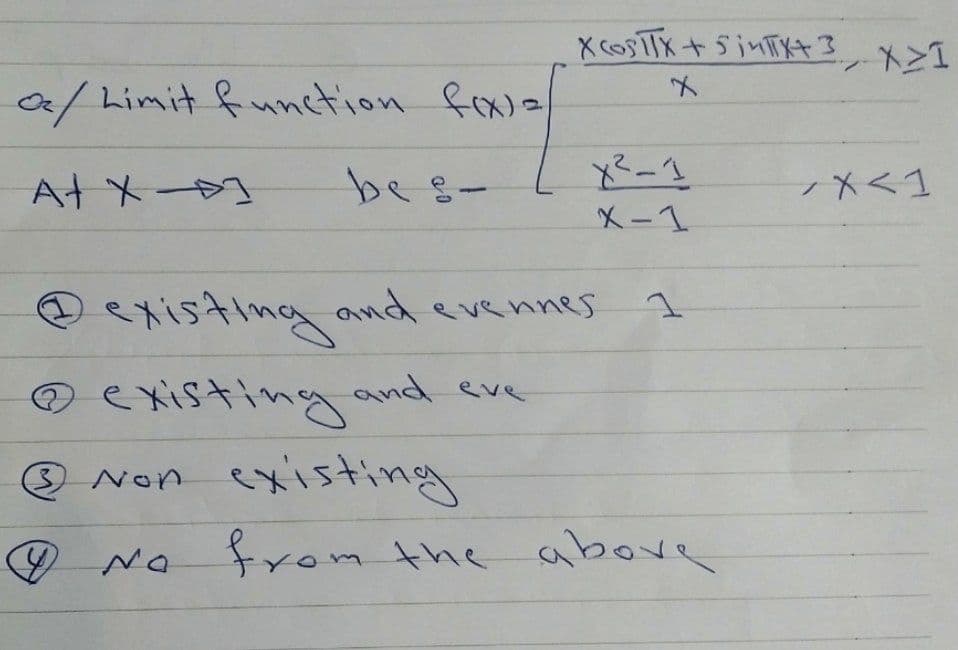 Q/ Limit function f(x)= [ xcosπx + sinπx+3 / x , x≥1
At x→1 be :- x²-1 / x-1 , x<1
① existing and evennes 1
② existing and eve
③ Non existing
④ No from the above